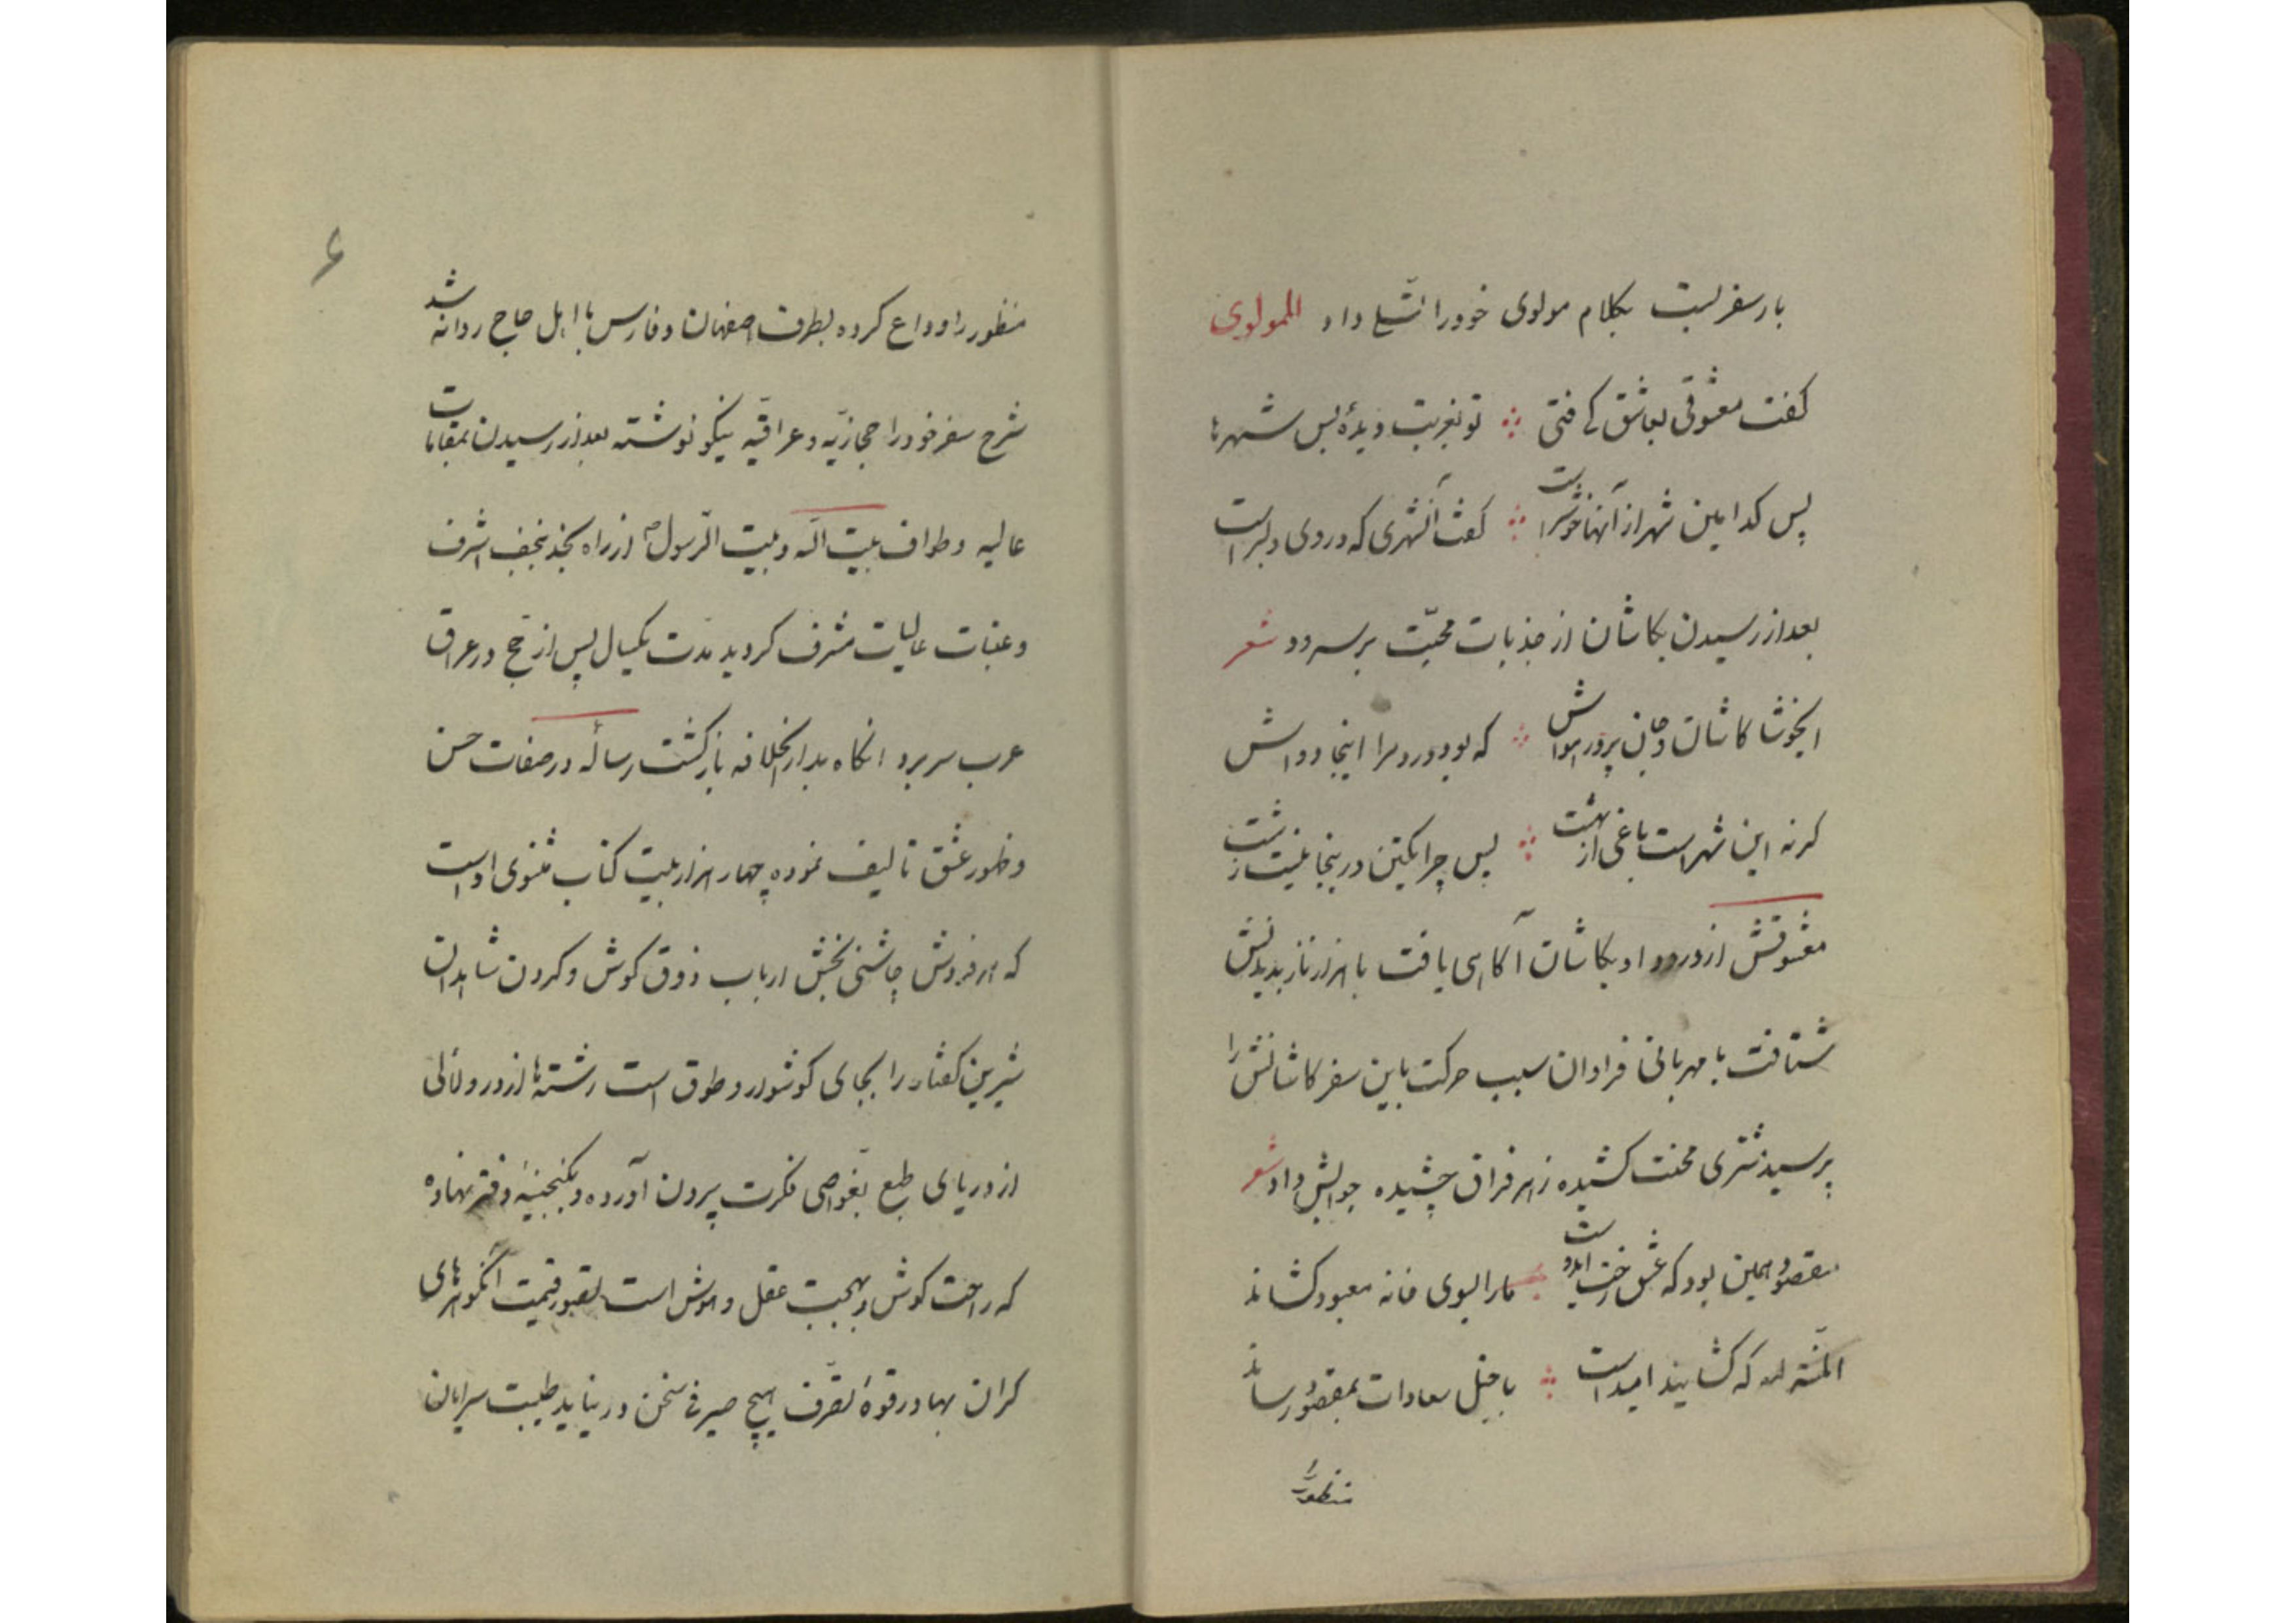 بار سفر بست بکلام مولوی خود را تسلّی داد للمولوی
کفت معشوقی بعاشق کای فتی ∴ تو بغربت دیدهٔ بس شهرها
پس کدامین شهر از آنها خوشتر است ∴ کفت آنشهری که در وی دلبر است
بعد از رسیدن بکاشان از جذبات محبّت برسرود شعر
ایخوشا کاشان و جان پرور هواش ∴ که بود درد مرا اینجا دواش
کرنه این شهر است باغی از بهشت ∴ پس چرا یکتن در اینجا نیست زشت
معشوقش از ورود او بکاشان آکاهی یافت با هزار ناز بدیدنش
شتافت با مهربانی فراوان سبب حرکت باین سفر کاشانش را
پرسید مشتری محنت کشیده زهر فراق چشیده جوابش داد شعر
مقصود همین بود که عشق رخت ایدوست ∴ مارا بسوی خانه معبود کشاند
المنّة لله که کشاینده امید است ∴ باخیل سعادات بمقصود رساند
منظور را
۶
منظور را وداع کرده بطرف اصفهان و فارس با اهل حاج روانه شد
شرح سفر خود را حجازیّه و عراقیّه نیکو نوشته بعد از رسیدن بمقامات
عالیه و طواف بیت الله و بیت الرّسول ص از راه نجد بنجف اشرف
و عتبات عالیات مشرف کردید مدّت یکسال پس از حج در عراق
عرب سر برد انکاه بدار الخلافه بازکشت رسالهٔ در صفات حسن
و ظهور عشق تالیف نموده چهار هزار بیت کتاب مثنوی او است
که هر فردش چاشنی بخش ارباب ذوق کوش و کردن شاهدان
شیرین کفتار را بجای کوشوار و طوق است رشته‌ها از درر و لئالی
از دریای طبع بغوّاصی فکرت بیرون آورده و بکنجینهٔ دفتر نهاده
که راحت کوش و بهجت عقل و هوش است تصور قیمت آنکوهرهای
کران بها در قوهٔ تصرّف هیچ صیرفی سخن در نیاید طیبت سرایان